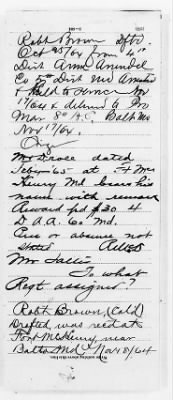 Robt Brown dftd
Oct 25/64 from 4"
Dist Anne Arundel
Co 5" Dist Md Arrested
& held to service Nov
17/64 & delivd to Pro
Mar 8" A.C. Balto Md
Nov 17/64.
Orig
MDrose dated
Feby '65 at Ft Mc
Henry Md bears his
name with remark
Reward pd $30 4
D A.A. Co. Md.
Pres or absence not
stated
Mr
To what
Regt assigned?
Robt Brown, (Cold)
Drafted, was recd at
Fort McHenry, near
Balto Md Nov 18/64